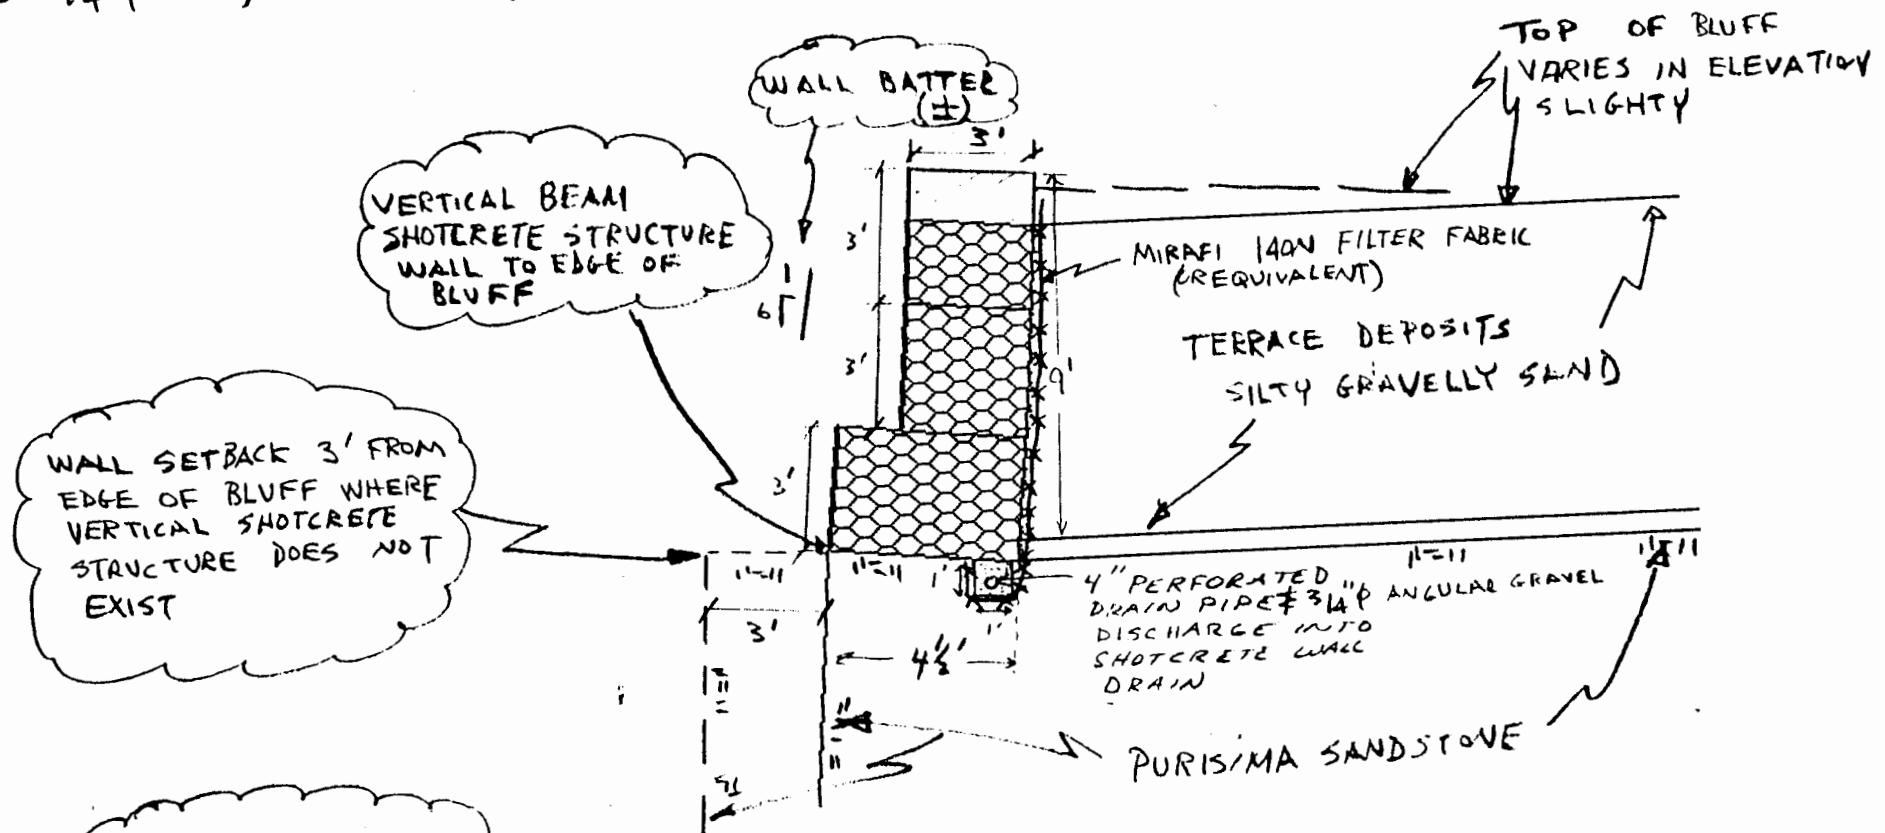 WALL BATTER
(±)
3'
TOP OF BLUFF
VARIES IN ELEVATION
SLIGHTY
VERTICAL BEAM
SHOTCRETE STRUCTURE
WALL TO EDGE OF
BLUFF
1
6
3'
3'
3'
9'
MIRAFI 140N FILTER FABRIC
(OR EQUIVALENT)
TERRACE DEPOSITS
SILTY GRAVELLY SAND
WALL SETBACK 3' FROM
EDGE OF BLUFF WHERE
VERTICAL SHOTCRETE
STRUCTURE DOES NOT
EXIST
3'
1'
1'
4½'
4" PERFORATED
DRAIN PIPE & 3/4"φ ANGULAR GRAVEL
DISCHARGE INTO
SHOTCRETE WALL
DRAIN
PURISIMA SANDSTONE